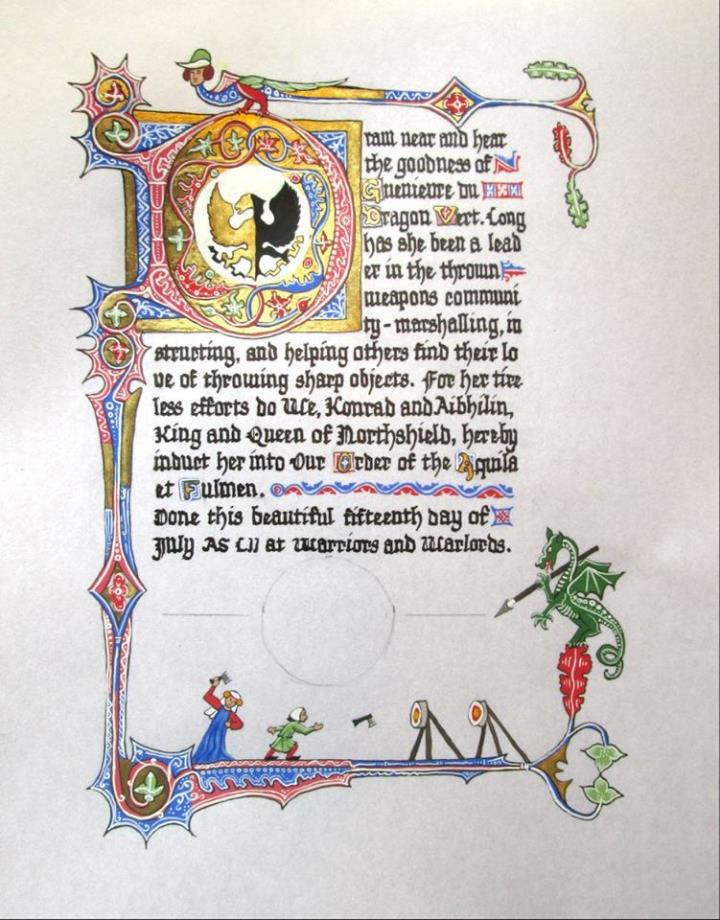 Draw near and hear
the goodness of
Guenievre du
Dragon Vert. Long
has she been a lead
er in the thrown
weapons communi
ty - marshalling, in
structing, and helping others find their lo
ve of throwing sharp objects. For her tire
less efforts do We, Konrad and Aibhilin,
King and Queen of Northshield, hereby
induct her into Our Order of the Aquila
et Fulmen.
Done this beautiful fifteenth day of
July AS LII at Warriors and Warlords.